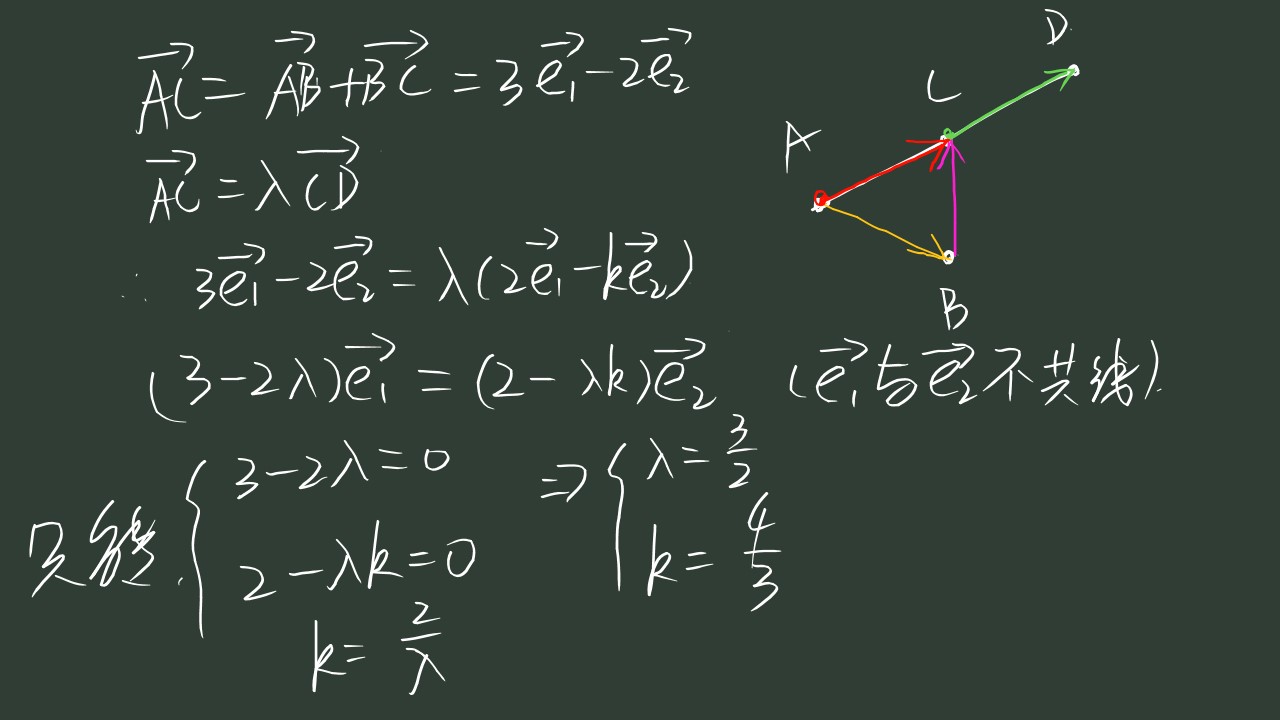 $\overrightarrow{AC}=\overrightarrow{AB}+\overrightarrow{BC}=3\overrightarrow{e_1}-2\overrightarrow{e_2}$
$\overrightarrow{AC}=\lambda\overrightarrow{CD}$
$\therefore 3\overrightarrow{e_1}-2\overrightarrow{e_2}=\lambda(2\overrightarrow{e_1}-k\overrightarrow{e_2})$
$(3-2\lambda)\overrightarrow{e_1}=(2-\lambda k)\overrightarrow{e_2}$ ($\overrightarrow{e_1}$与$\overrightarrow{e_2}$不共线).
只能 $\begin{cases}3-2\lambda=0\\2-\lambda k=0\end{cases}\Rightarrow\begin{cases}\lambda=\frac{3}{2}\\k=\frac{4}{3}\end{cases}$
$k=\frac{2}{\lambda}$
D
C
A
B